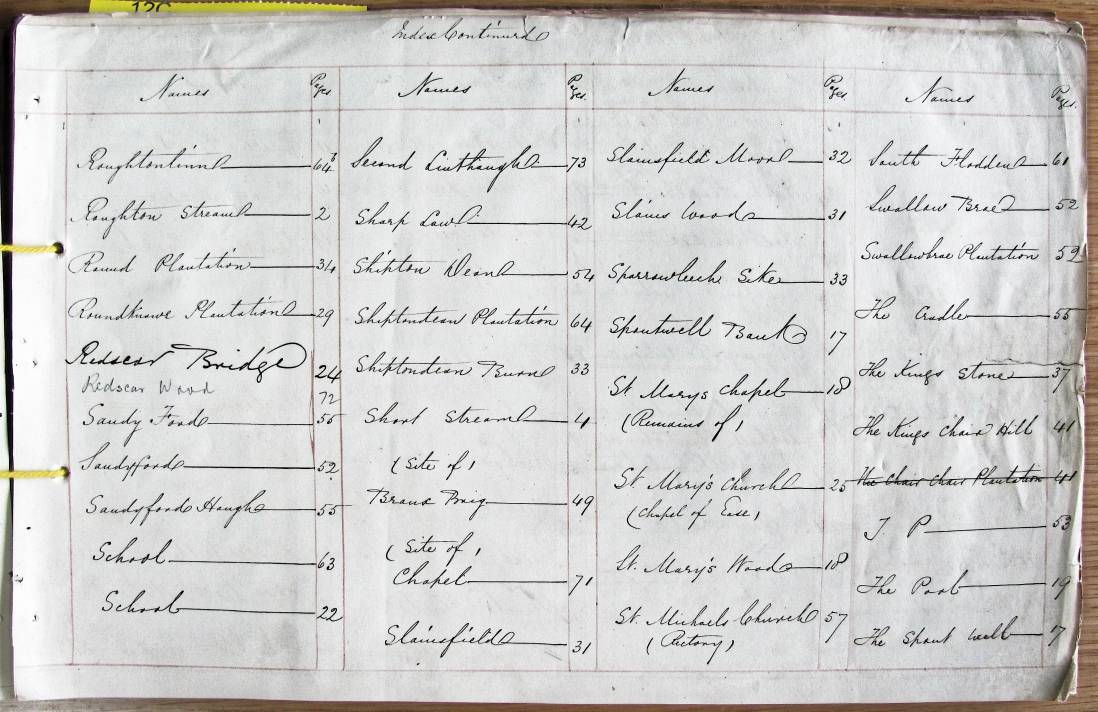 Index Continued
Names Pages
Roughtontinn 64
Roughton Stream 2
Round Plantation 34
Roundknowe Plantation 29
Redscar Bridge 24
Redscar Wood 72
Sandy Ford 55
Sandyford 52
Sandyford Haugh 55
School 63
School 22
Names Pages
Second Linthaugh 73
Sharp Law 42
Shipton Dean 54
Shiptondean Plantation 64
Shiptondean Burn 33
Short Stream 4
(Site of)
Branx Brig 49
(Site of)
Chapel 71
Slainsfield 31
Names Pages
Slainsfield Moor 32
Slaines Wood 31
Sparrowleech Sike 33
Spoutwell Bank 17
St. Mary's Chapel 18
(Remains of)
St Mary's Church 25
(Chapel of Ease)
St. Mary's Wood 18
St. Michaels Church 57
(Rectory)
Names Pages.
South Flodden 61
Swallow Brae 52
Swallowbrae Plantation 52
The Cradle 55
The Kings Stone 37
The Kings Chair Hill 41
The Chair Chair Plantation 41
T. P 53
The Pool 19
The Spout Well 17